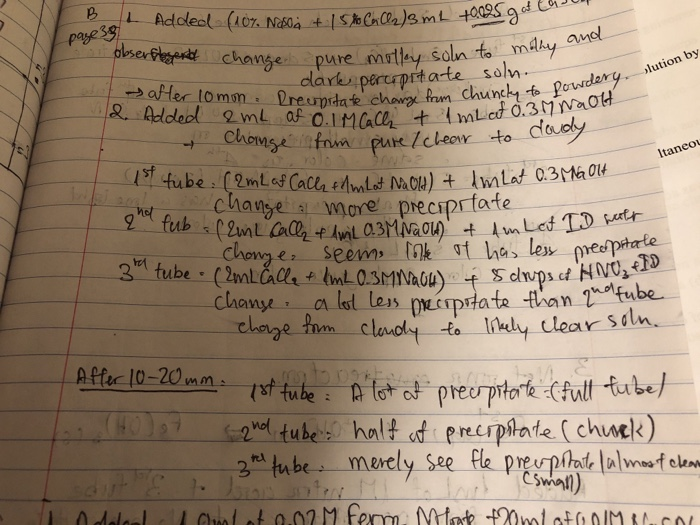 B 1. Added (10% Na2SO4 + 15% CaCl2) 3 mL + 0.025 g of
page 35
observ change pure motley soln to milky and
dark percipitate soln.
→ after 10 min. Precipitate change from chuncly to Powdery.
2. Added 2 mL of 0.1M CaCl2 + 1 mL of 0.3M NaOH
→ Change from pure/clear to cloudy
1st tube: (2mL of CaCl2 + 1mL of NaOH) + 1mL of 0.3 NaOH
Change: more precipitate
2nd tub: (2mL CaCl2 + 1mL 0.3M NaOH) + 1mL of ID water
Change: seems like it has less precipitate
3rd tube: (2mL CaCl2 + 1mL 0.3M NaOH) + 5 drops of HNO3 + ID
Change: a lot less precipitate than 2nd tube
change from cloudy to likely clear soln.
After 10-20 min:
1st tube: A lot of precipitate (full tube)
2nd tube: half of precipitate (chunck)
3rd tube: merely see the precipitate (almost clean
(small)
1. Added 1 of 0.02 M Ferric Nitrate + 20ml of 0.01M
lution by
ltaneou